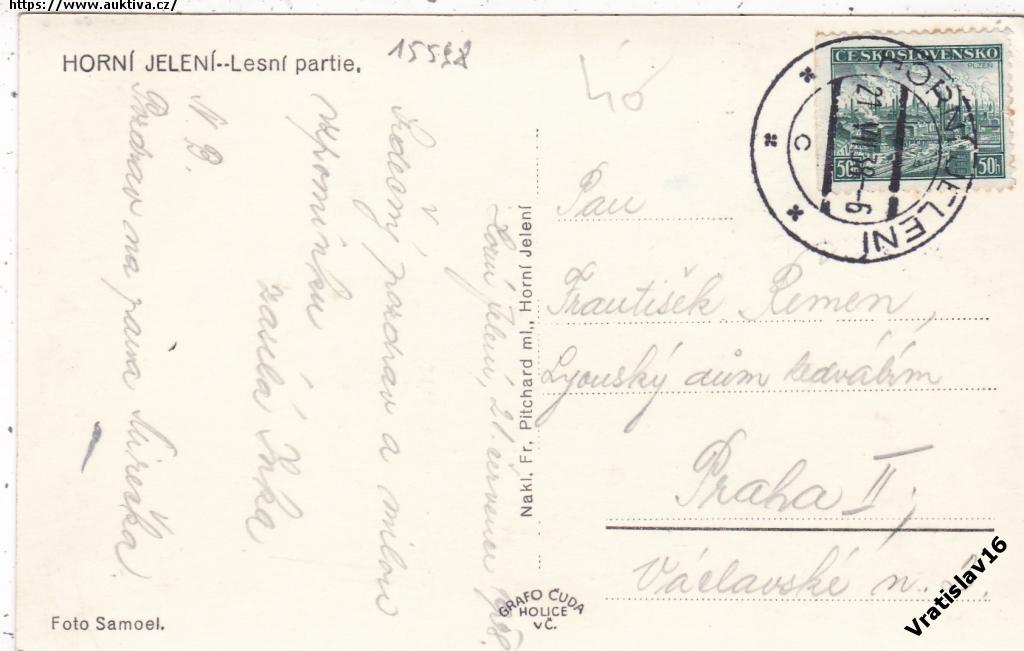 https://www.auktiva.cz/
HORNÍ JELENÍ--Lesní partie.
15598
40
ČESKOSLOVENSKO
PLZEŇ
50h 50h
HORNÍ JELENÍ
21 VII 38-6
C
Horní Jelení, 21. července 1938.
Srdečný pozdrav a milou
vzpomínku
zasílá
N. B.
Pozdrav na pana
Nakl. Fr. Pitchard ml., Horní Jelení
Pan
František Řemen,
Lyonský dům hedvábím
Praha II,
Václavské n.
GRAFO ČUDA
HOLICE
V Č.
Foto Samoel.
Vratislav16